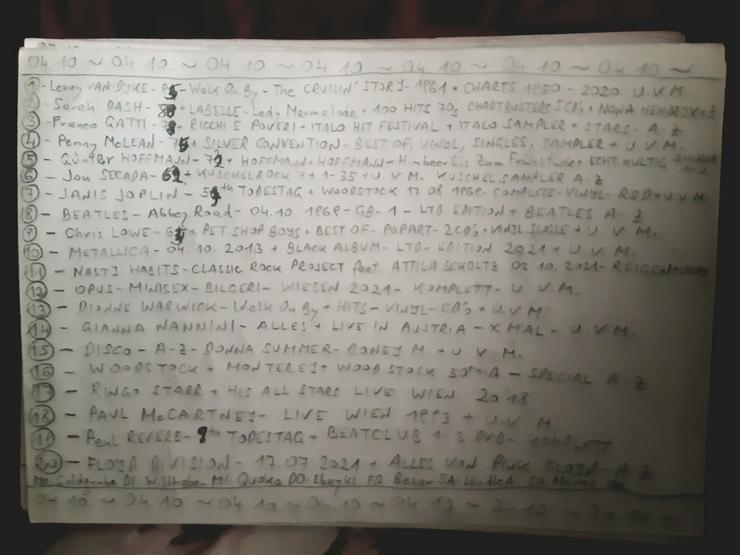 04 10 ~ 04 10 ~ 04 10 ~ 04 10 ~ 04 10 ~ 04 10 ~ 04 10 ~
1 - Leroy VAN DYKE - 95 - Walk On By - The CRUISIN' STORY - 1961 + CHARTS 1950 - 2020 U.V.M.
2 - Sarah DASH - + LABELLE - Lady Marmelade + 100 HITS 70s CHARTBUSTERS 5CD's + NONA HENDRYX +
3 - Franco GATTI - + RICCHI E POVERI + ITALO HIT FESTIVAL + ITALO SAMPLER + STARS - A-Z
4 - Penny McLEAN - + SILVER CONVENTION - BEST OF, VINYL, SINGLES, SAMPLER + U.V.M.
5 - Günther HOFFMANN - + HOFFMANN + HOFFMANN - Himbeer Eis zum Frühstück + ECHT KULTIG
6 - Jon SECADA - + KUSCHELROCK 7 + 1-35 + U.V.M. KUSCHELSAMPLER A-Z
7 - JANIS JOPLIN - th TODESTAG + WOODSTOCK 17 08 1969 - COMPLETE - VINYL - RSD + U.V.M.
8 - BEATLES - Abbey Road - 04.10 1969 - GB - 1 - LTD EDITION + BEATLES A-Z
9 - Chris LOWE - + PET SHOP BOYS + BEST OF - POPART - 2CD's + VINYL SINGLE + U.V.M.
10 - METALLICA - 04.10.2013 + BLACK ALBUM - LTD - EDITION 2021 + U.V.M.
11 - NASTY HABITS - CLASSIC ROCK PROJECT feat. ATTILA SCHOLTZ 02 10. 2021 -
12 - OPUS - MINISEX - BILGERI - WIESEN 2021 - KOMPLETT - U.V.M.
13 - DIONNE WARWICK - Walk On By + HITS - VINYL - CD's + U.V.M.
14 - GIANNA NANNINI - ALLES + LIVE IN AUSTRIA - X MAL - U.V.M.
15 - DISCO - A-Z - DONNA SUMMER - BONEY M. + U.V.M.
16 - WOODSTOCK + MONTEREY + WOODSTOCK 50th A - SPECIAL A-Z
17 - RINGO STARR + HIS ALL STARS LIVE WIEN 2018
18 - PAUL McCARTNEY - LIVE WIEN 1993 + U.V.M.
19 - Paul REVERE - th TODESTAG + BEATCLUB 1-3 DVD - KOMPLETT
20 - FLOYD DIVISION - 17 07 2021 + ALLES VON PINK FLOYD - A-Z
MO DI MI DO FR SA SO
04 10 ~ 04 10 ~ 04 10 ~ 04 10 ~ 04 10 ~ 04 10 ~ 04 10 ~